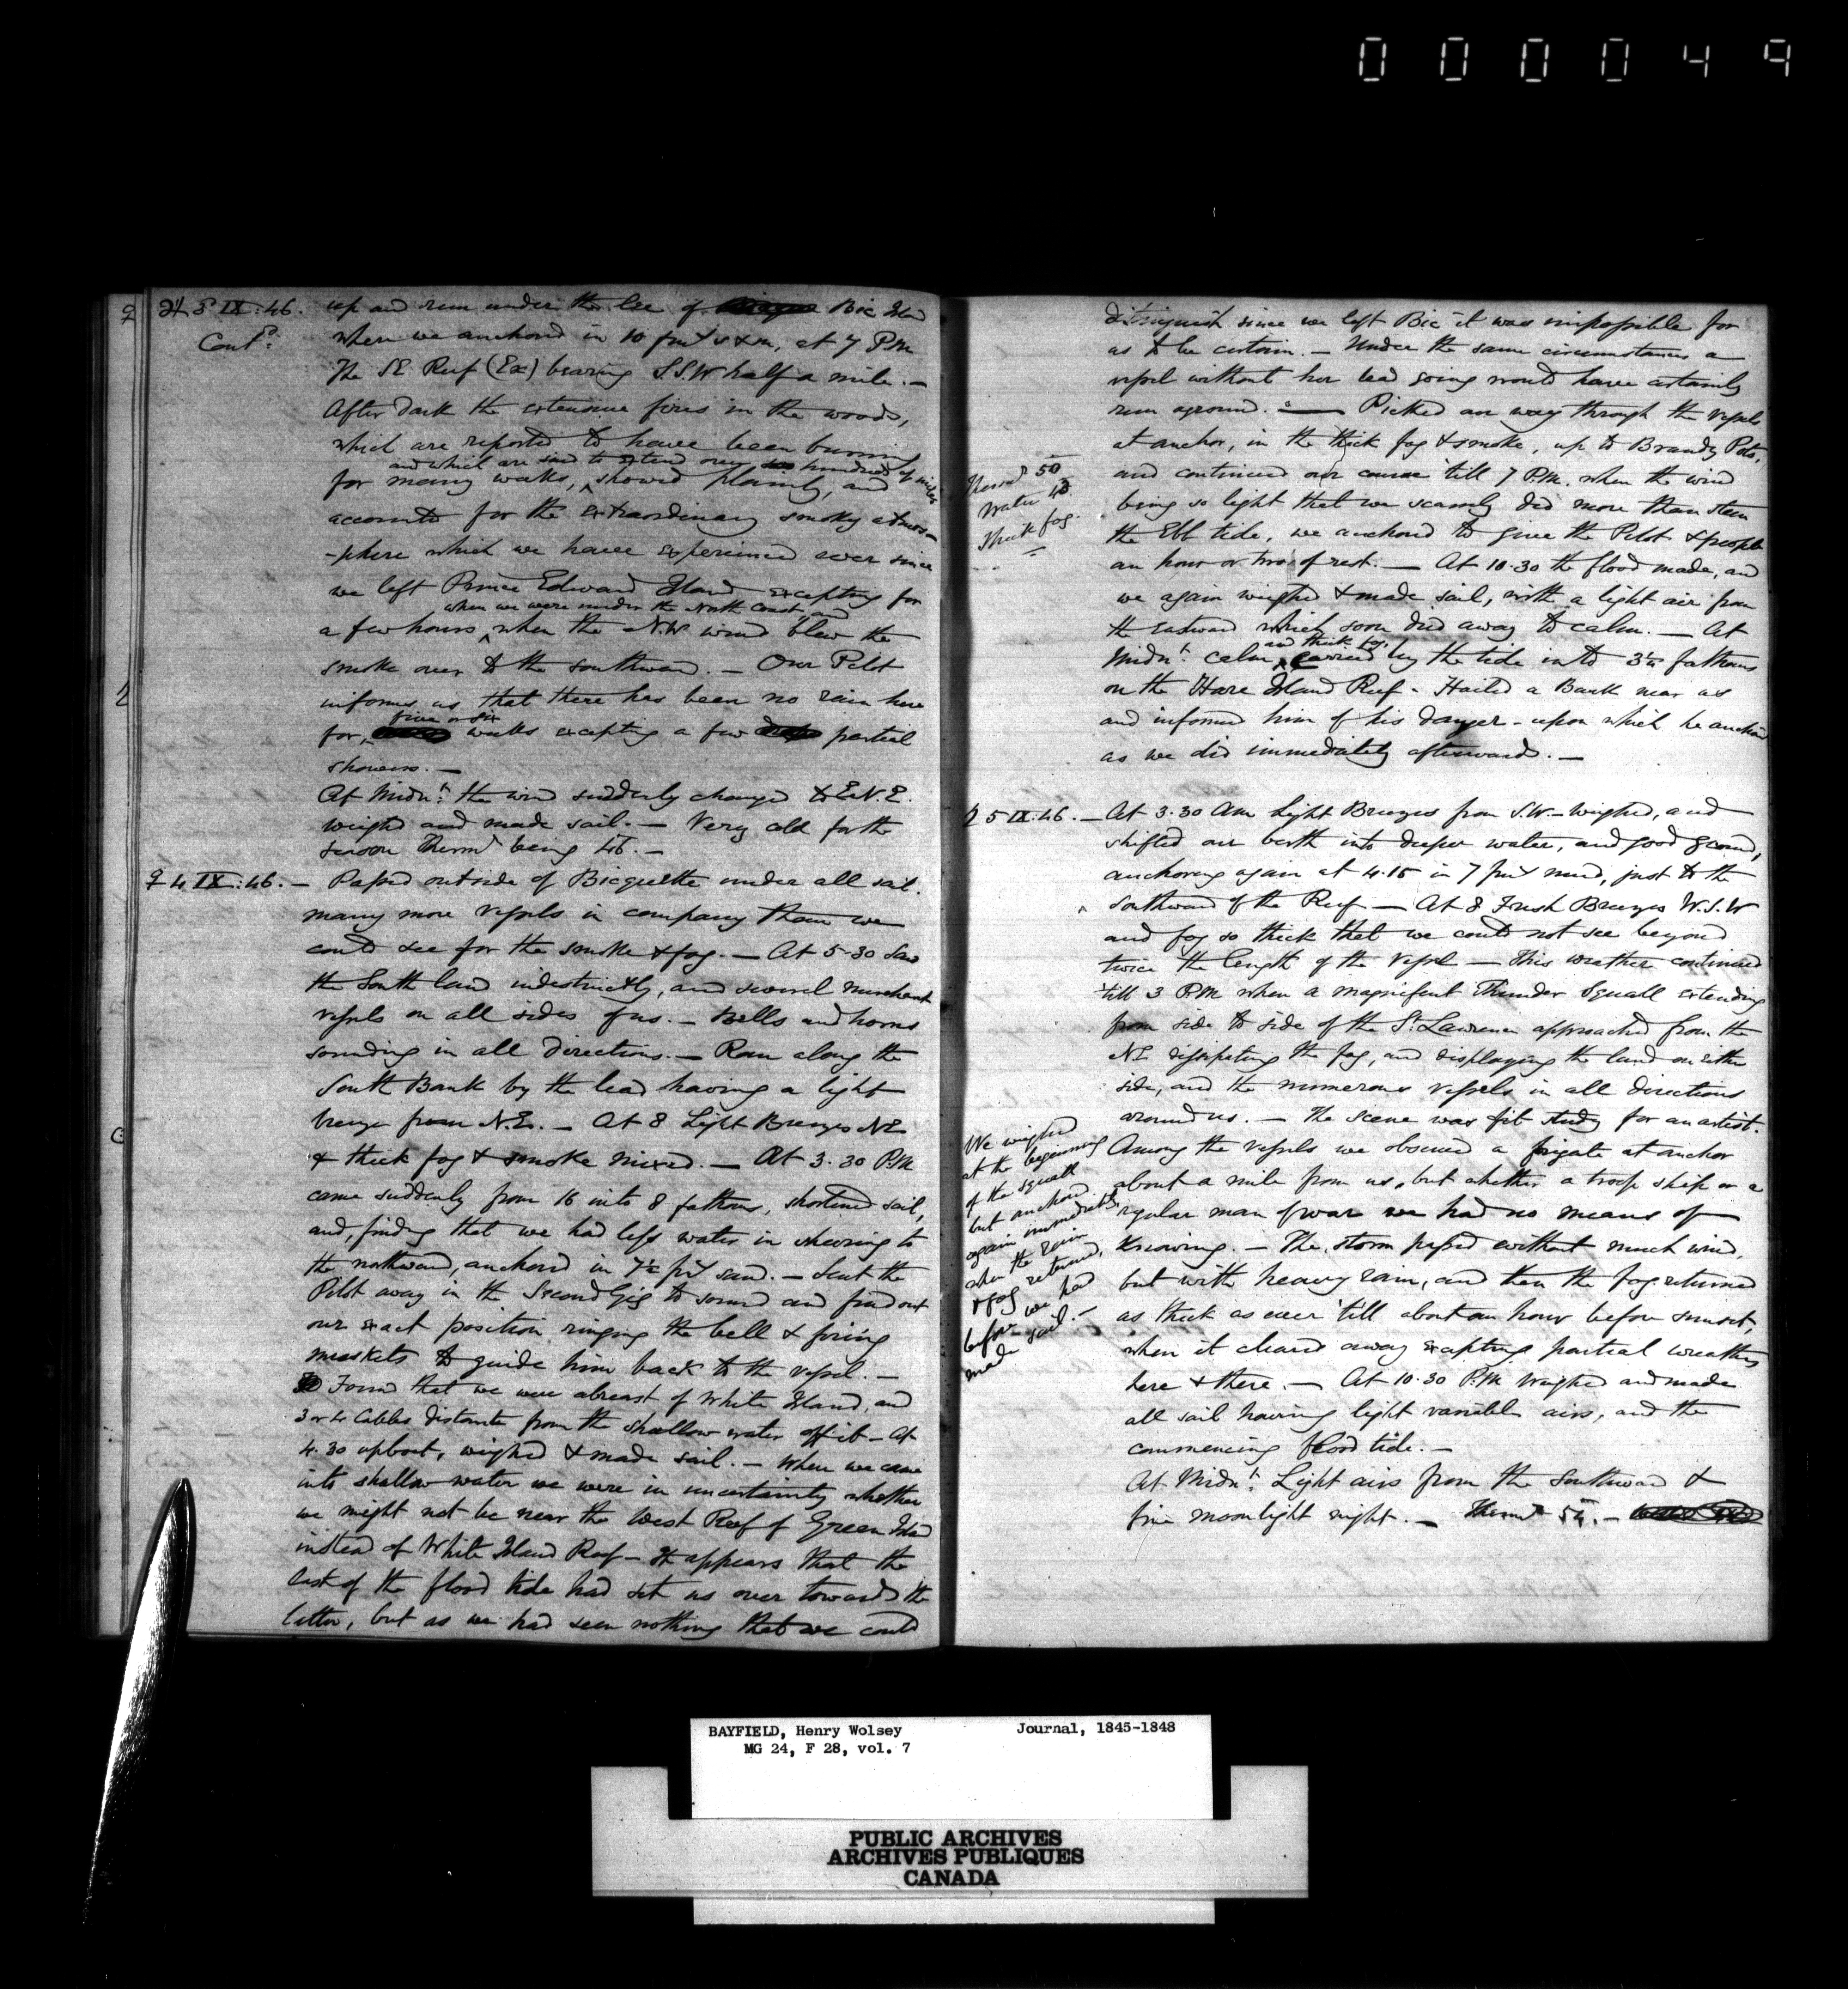 000049
♃ 3 IX:46. up and run under the lee of Bic Isld
Contd: where we anchored in 10 fms s & m, at 7 P.M
The SE Reef (Ex) bearing S.S.W half a mile. —
After dark the extensive fires in the woods,
which are reported to have been burning
and which are said to extend over hundreds of miles
for many weeks, ^ showed plainly, and
accounts for the extraordinary smoky atmos-
-phere which we have experienced ever since
we left Prince Edward Island excepting for
when we were under the North Coast, and
a few hours ^ when the N.W wind blew the
smoke over to the southward. — Our Pilot
informs us that there has been no rain here
five or six
for ^ weeks excepting a few partial
showers. —
At Midnt: the wind suddenly changed to E.N.E.
weighed and made sail. — Very cold for the
season Thermr being 46. —
♀ 4 IX:46. — Passed outside of Bicquette under all sail.
many more vessels in company than we
could see for the smoke & fog. — At 5-30 Saw
the South land indistinctly, and several merchant
vessels on all sides of us. — Bells and horns
sounding in all directions. — Ran along the
South Bank by the lead having a light
breeze from N.E. — At 8 Light Breezes NE
& thick fog & smoke mixed. — At 3.30 P.M
came suddenly from 16 into 8 fathoms, shortened sail,
and, finding that we had less water in sheering to
the northward, anchored in 7½ fms sand. — Sent the
Pilot away in the Second Gig to sound and find out
our exact position, ringing the bell & firing
muskets to guide him back to the vessel. —
Found that we were abreast of White Island, and
3 or 4 Cables distante from the shallow water off it — At
4.30 upboat, weighed & made sail. — When we came
into shallow water we were in uncertainty whether
we might not be near the West Reef of Green Isld
instead of White Island Reef — It appears that the
last of the flood tide had set us over towards the
latter, but as we had seen nothing that we could
distinguish since we left Bic it was impossible for
us to be certain. — Under the same circumstances a
vessel without her lead going would have certainly
run aground. — Picked our way through the vessels
at anchor, in the thick fog & smoke, up to Brandy Pots,
and continued our course 'till 7 P.M. when the wind
being so light that we scarcely did more than stem
the Ebb tide, we anchored to give the Pilot & people
an hour or two of rest. — At 10.30 the flood made, and
we again weighed & made sail, with a light air from
the eastward which soon died away to calm. — At
and thick fog.
Midnt: calm, ^ carried by the tide into 3½ fathoms
on the Hare Island Reef - Hailed a Bark near us
and informed him of his danger - upon which he anchord
as we did immediately afterward. —
Thermr 50
Water 43
Thick fog.
♄ 5 IX:46. — At 3.30 Am Light Breezes from S.W. — Weighed, and
shifted our berth into deeper water, and good ground,
anchoring again at 4.15 in 7 fms mud, just to the
Southward of the Reef — At 8 Fresh Breezes W.S.W
and fog so thick that we could not see beyond
twice the length of the vessel — This weather continued
'till 3 P.M when a magnificent Thunder Squall extending
from side to side of the St. Lawrence approached from the
NE dissipating the fog, and displaying the land on either
side, and the numerous vessels in all directions
around us. — The scene was fit study for an artist.
Among the vessels we observed a frigate at anchor
about a mile from us, but whether a troop ship or a
regular man of war we had no means of
Knowing. — The storm passed without much wind,
but with heavy rain, and then the fog returned
as thick as ever 'till about an hour before sunset,
when it cleared away excepting partial wreathes
here & there. — At 10.30 P.M Weighed and made
all sail having light variable airs, and the
commencing flood tide. —
At Midnt: Light airs from the Southward &
fine moonlight night. — Thermr 54. —
We weighed
at the beginning
of the squall
but anchord
again immediately
when the rain
& fog returned,
before we had
made sail. —
BAYFIELD, Henry Wolsey Journal, 1845-1848
MG 24, F 28, vol. 7
PUBLIC ARCHIVES
ARCHIVES PUBLIQUES
CANADA